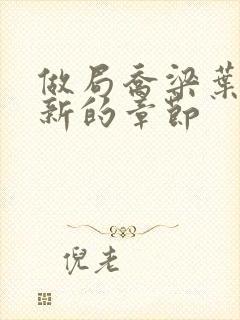 做局乔梁葉
新的章節
倪老